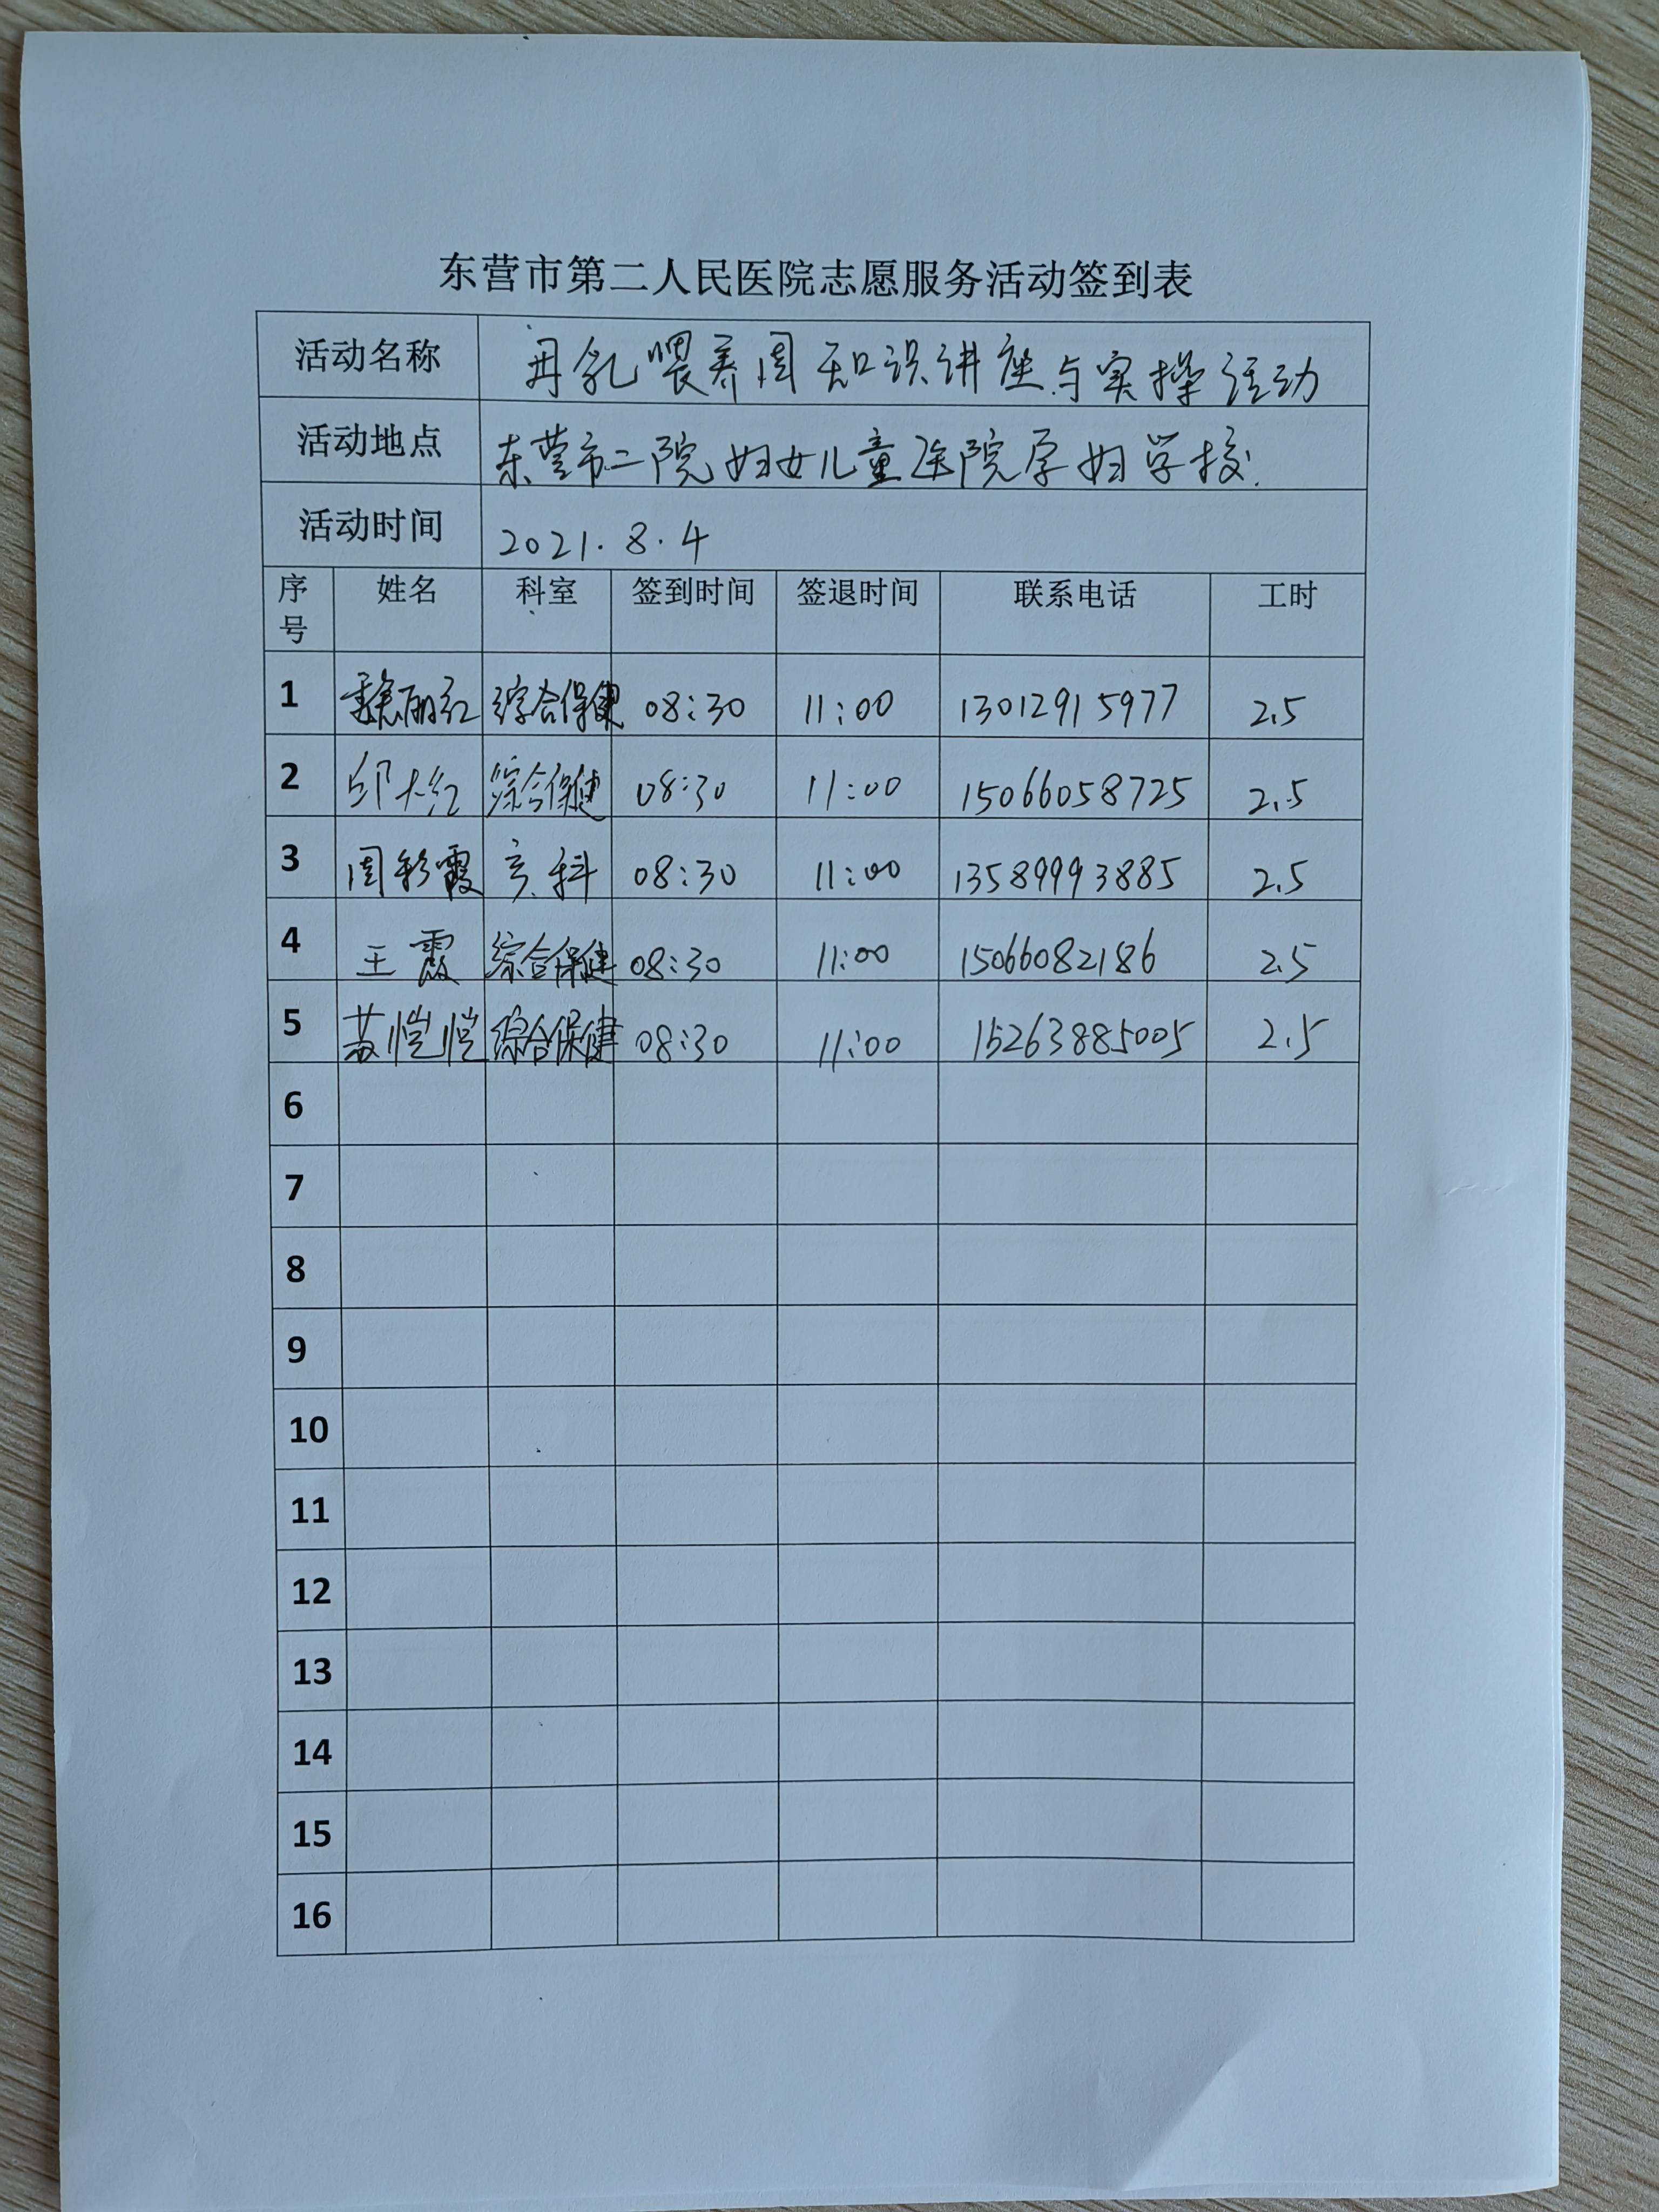 东营市第二人民医院志愿服务活动签到表
活动名称 母乳喂养周知识讲座与实操活动
活动地点 东营市二院妇女儿童医院孕妇学校.
活动时间 2021.8.4
序号 姓名 科室 签到时间 签退时间 联系电话 工时
1 丽红 综合保健 08:30 11:00 13012915977 2.5
2 邱大红 综合保健 08:30 11:00 15066058725 2.5
3 周彩霞 产科 08:30 11:00 13589993885 2.5
4 王霞 综合保健 08:30 11:00 15066082186 2.5
5 苏恺恺 综合保健 08:30 11:00 15263885005 2.5
6
7
8
9
10
11
12
13
14
15
16